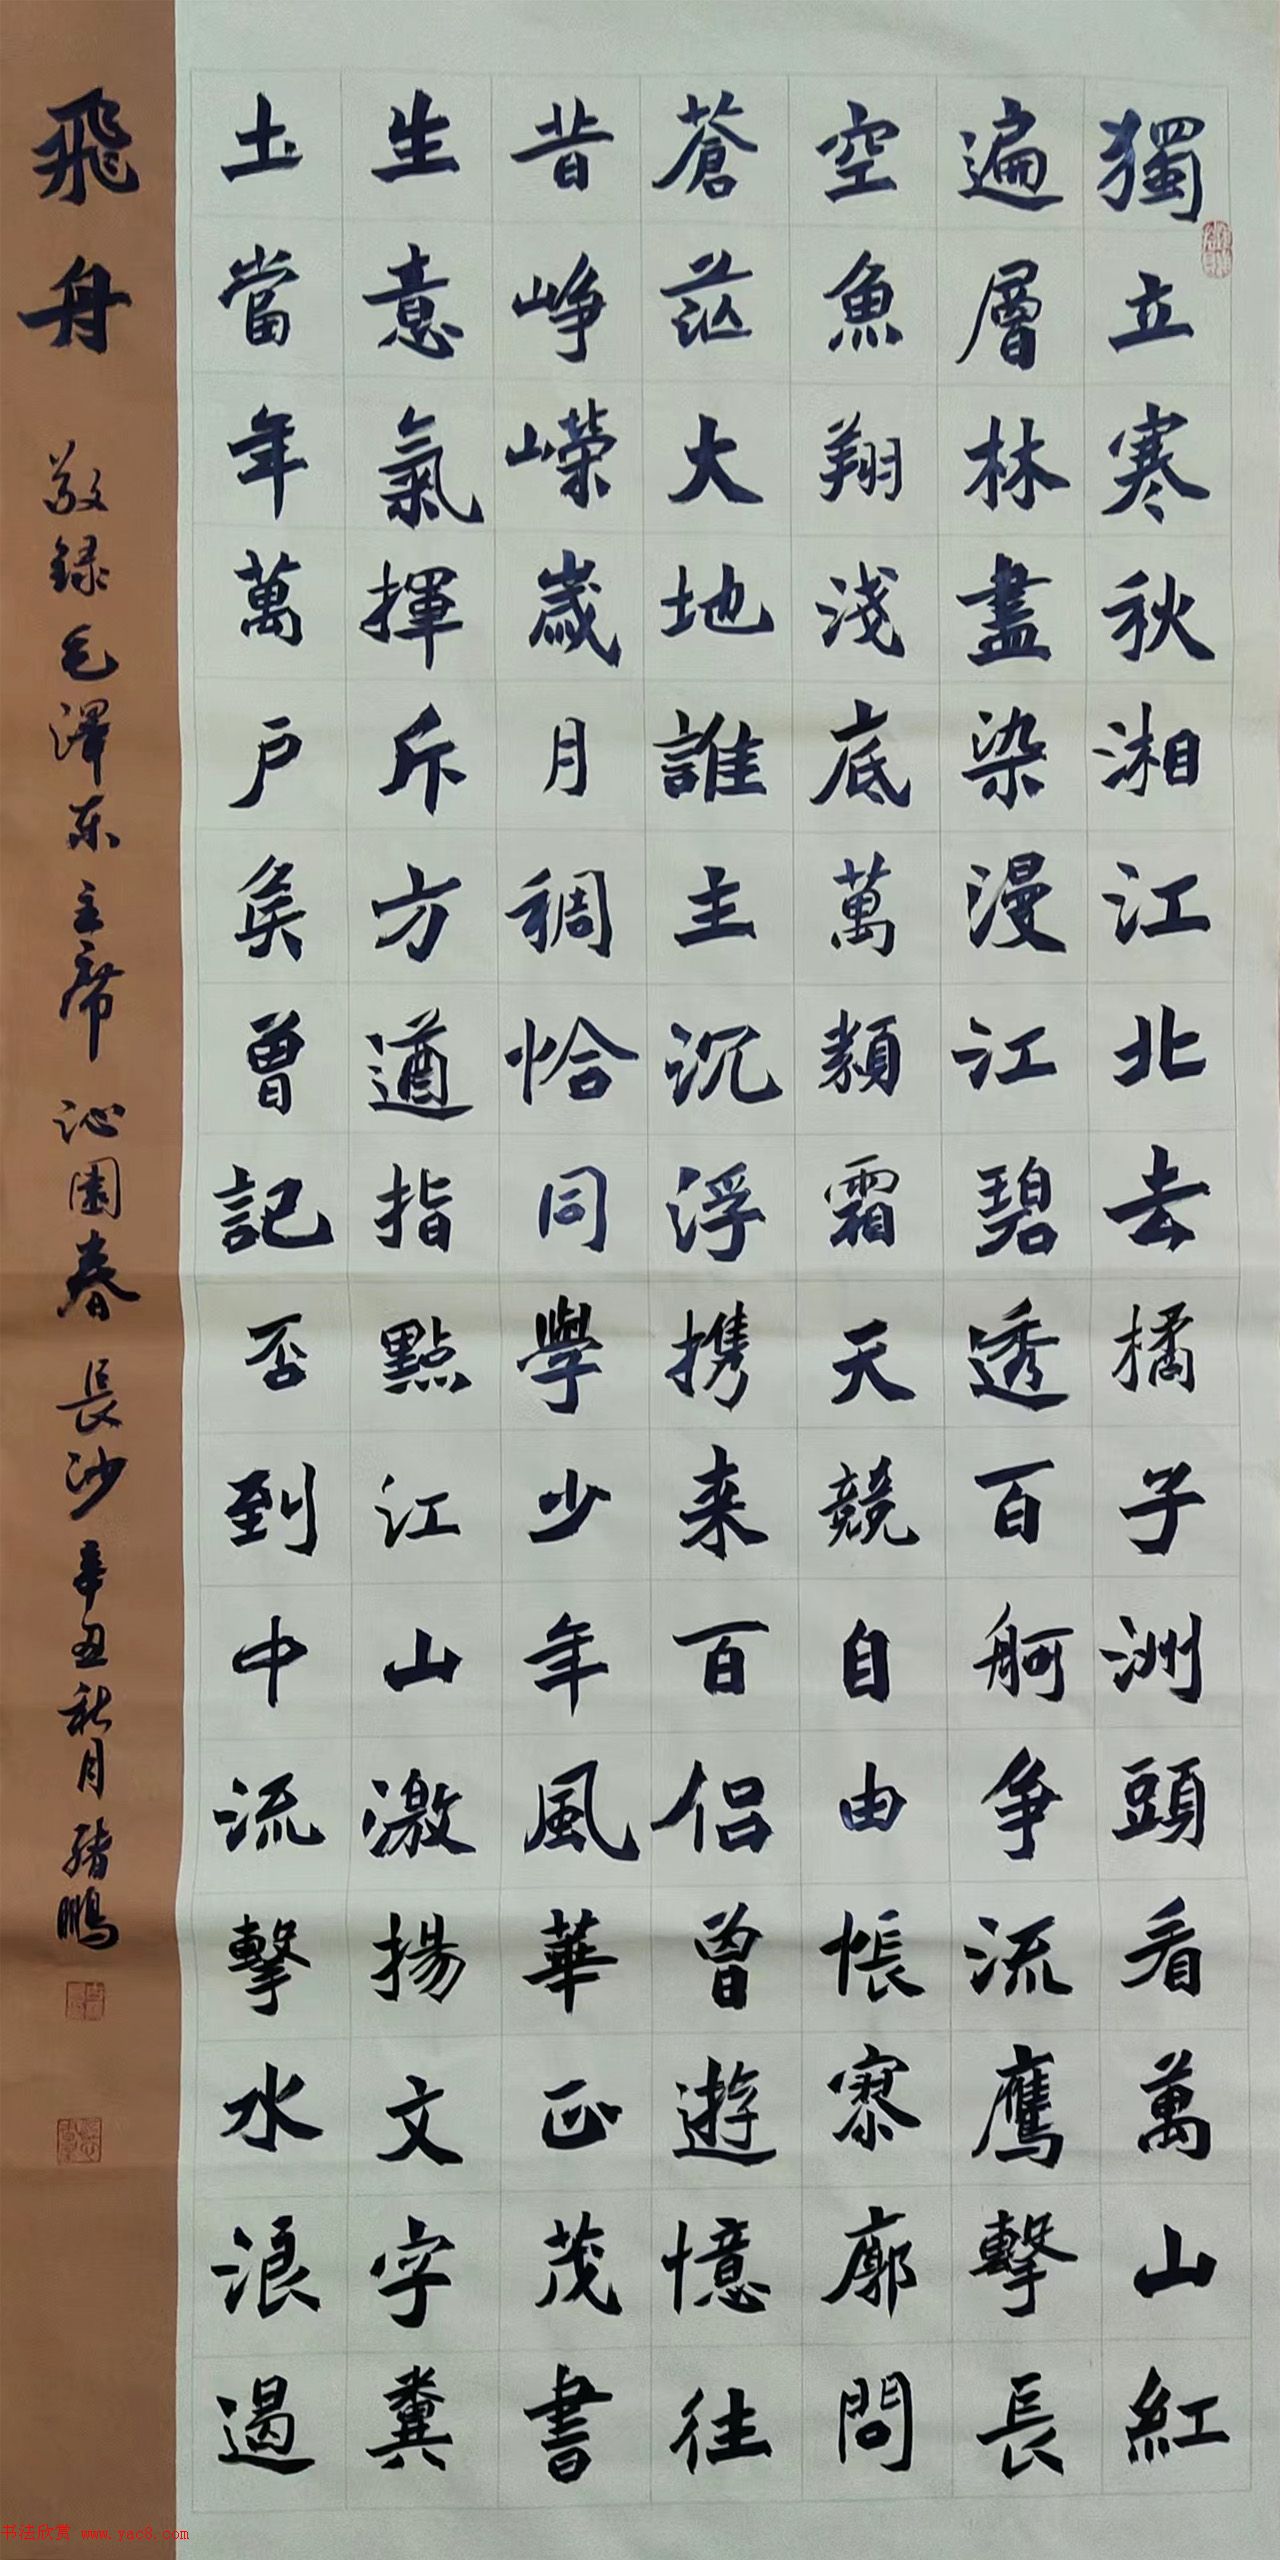 獨立寒秋湘江北去橘子洲頭看萬山紅
遍層林盡染漫江碧透百舸爭流鷹擊長
空魚翔淺底萬類霜天競自由帳寥廓問
蒼茫大地誰主沉浮携来百侣曾遊憶往
昔崢嶸歲月稠恰同學少年風華正茂書
生意氣揮斥方遒指點江山激揚文字糞
土當年萬户矦曾記否到中流擊水浪遏
飛舟 敬録毛澤东主席沁園春長沙辛丑秋月 鵬
书法欣赏 www.yac8.com